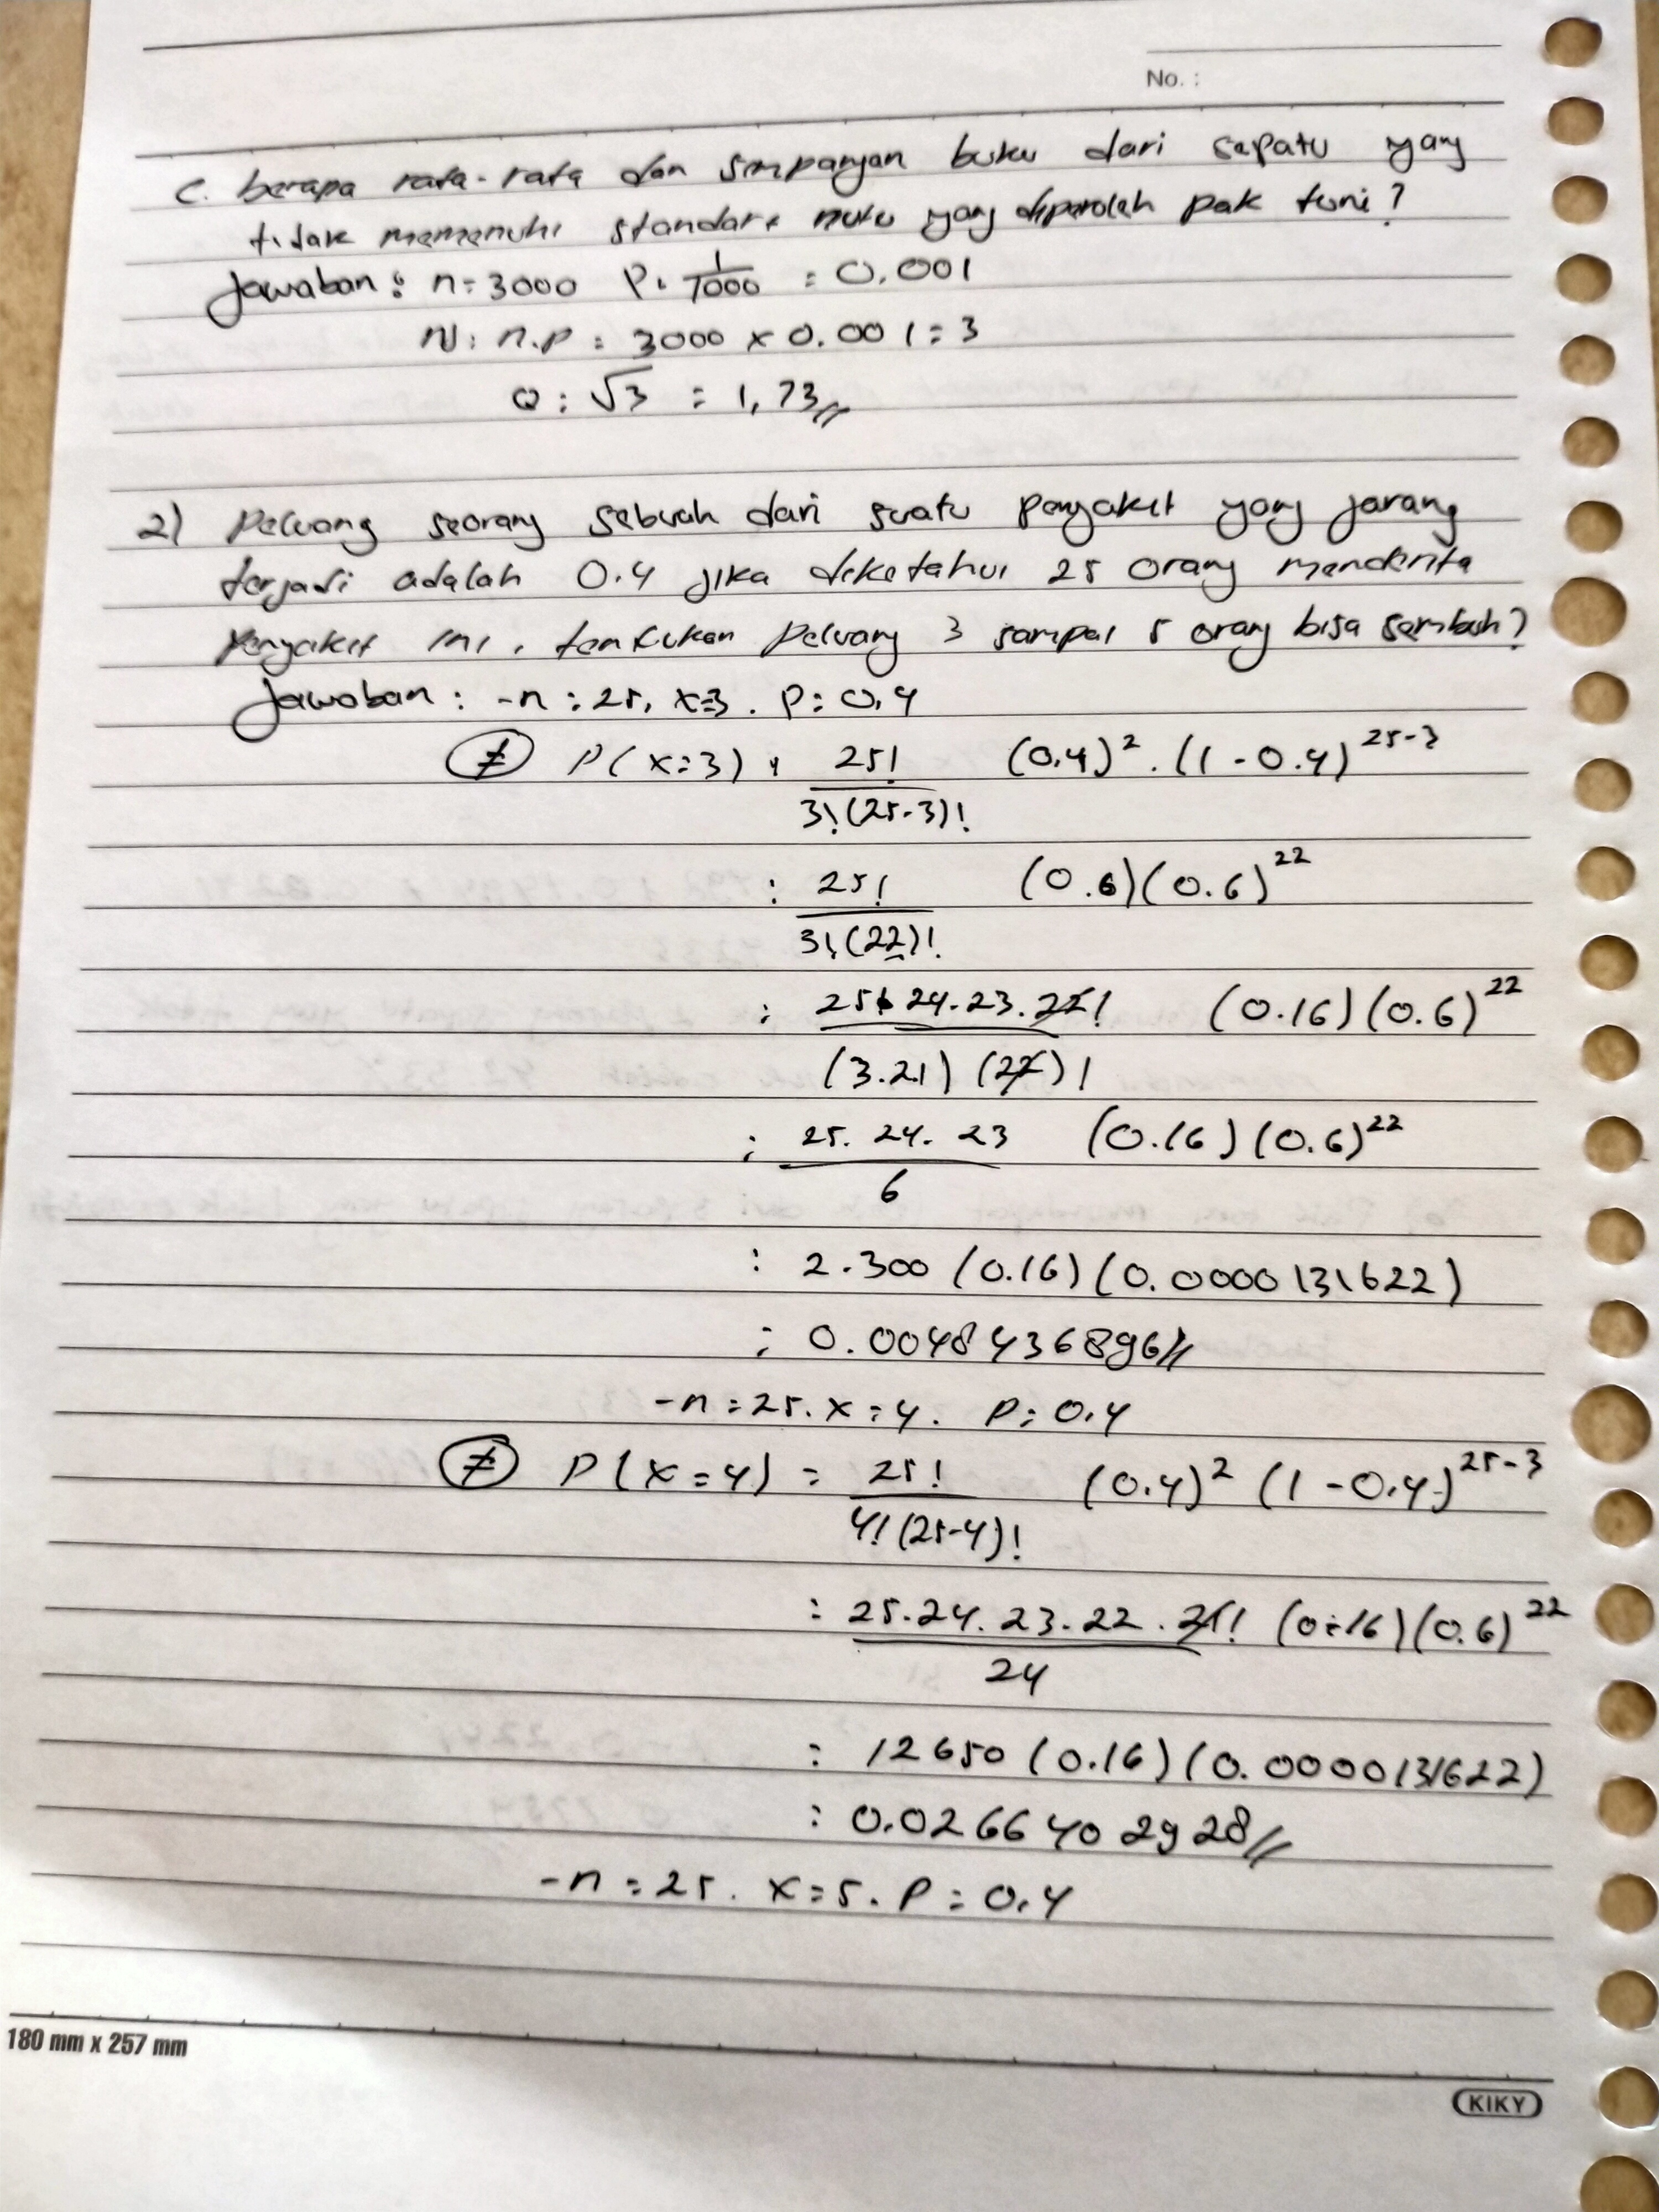 No. :
c. berapa rata-rata dan simpangan buku dari sepatu yang
tidak memenuhi standart mutu yang diperoleh pak toni?
Jawaban : n = 3000 P = 1/1000 = 0.001
N : n.p = 3000 x 0.001 = 3
Q : √3 = 1,73//
2) Peluang seorang sebuah dari suatu penyakit yang jarang
terjadi adalah 0.4 jika diketahui 25 orang menderita
Penyakit ini, tentukan peluang 3 sampai 5 orang bisa sembuh?
Jawaban : - n : 25, x=3. P : 0,4
≠ P(x=3) = 25!/3!(25-3)! (0,4)² . (1-0.4)²⁵⁻³
: 25!/3!(22)! (0.6)(0.6)²²
: 25.24.23.22!/(3.2.1)(22)! (0.16)(0.6)²²
: 25. 24. 23/6 (0.16)(0.6)²²
: 2.300 (0.16)(0.0000131622)
: 0.0048436896//
- n = 25. x = 4. P = 0.4
≠ P(x=4) = 25!/4!(25-4)! (0.4)² (1-0,4)²⁵⁻³
: 25.24.23.22.21!/24 (0.16)(0.6)²²
: 12650 (0.16)(0.0000131622)
: 0.0266402928//
- n = 25. x = 5. P = 0.4
180 mm x 257 mm
KIKY